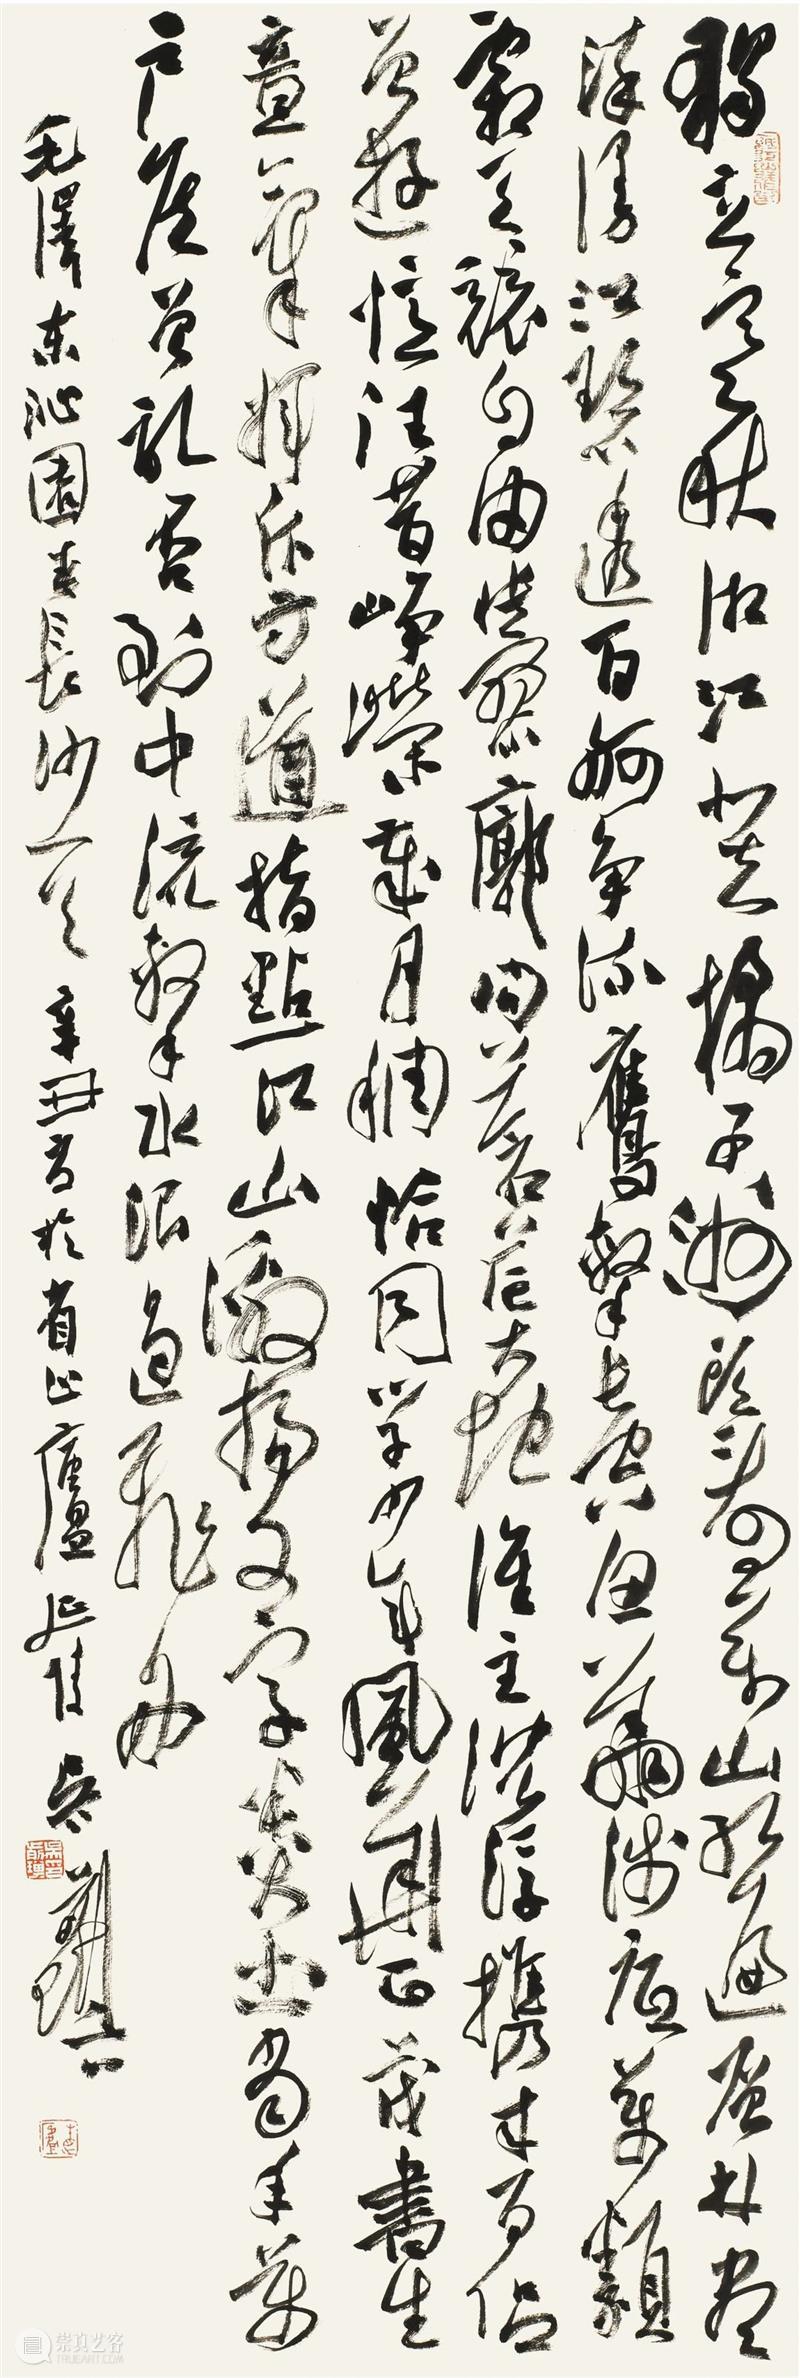 獨立寒秋湘江北去橘子洲頭看萬山紅遍層林盡
染漫江碧透百舸争流鷹擊長空魚翔淺底萬類
霜天競自由悵寥廓問蒼茫大地誰主沉浮攜来百侣
曾遊憶往昔崢嶸歲月稠恰同學少年風華正茂書生
意氣揮斥方遒指點江山激揚文字糞土當年萬
户侯曾記否到中流擊水浪遏飛舟
毛澤東沁園春長沙一首 辛丑書於省廬延陵吳
崇真艺客
TRUEART.COM